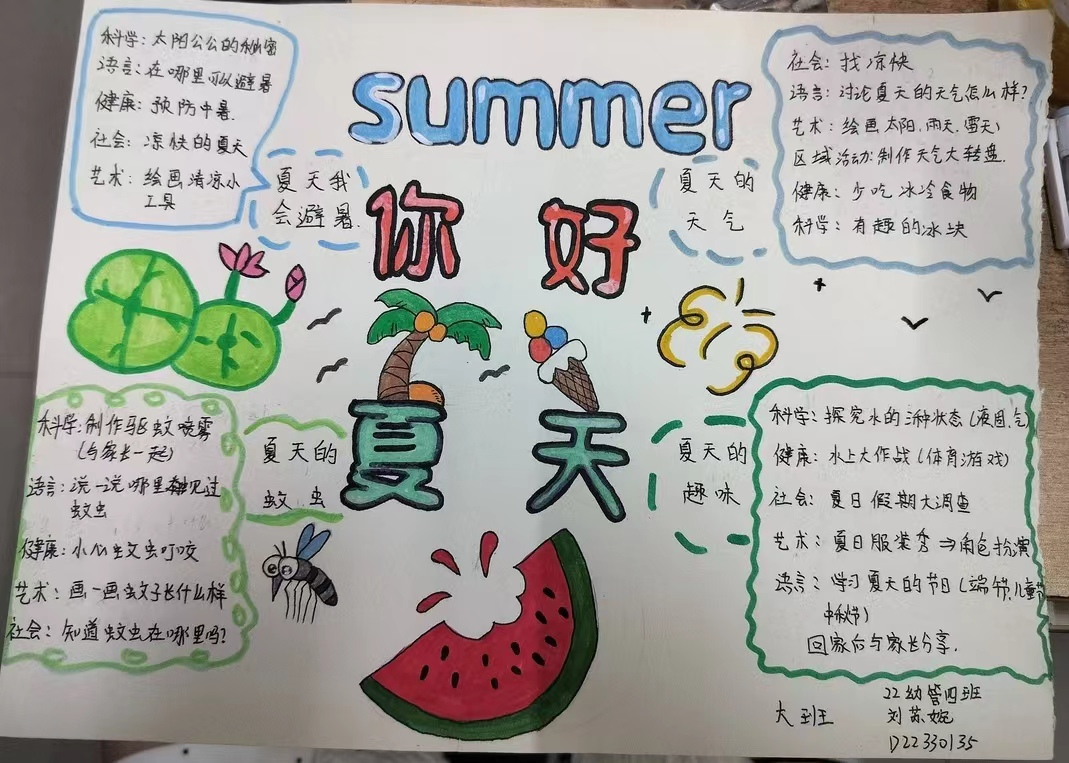 summer
你好
夏天
科学: 太阳公公的秘密
语言: 在哪里可以避暑
健康: 预防中暑.
社会: 凉快的夏天
艺术: 绘画清凉小
工具
夏天我
会避暑.
夏天的
天气
社会: 找凉快
语言: 讨论夏天的天气怎么样?
艺术: 绘画太阳、雨天、雷天)
区域活动: 制作天气大转盘.
健康: 少吃冰冷食物
科学: 有趣的冰块
科学: 制作驱蚊喷雾
(与家长一起)
语言: 说一说哪里见过
蚊虫
健康: 小心蚊虫叮咬
艺术: 画一画蚊子长什么样
社会: 知道蚊虫在哪里吗?
夏天的
蚊虫
夏天的
趣味
科学: 探究水的三种状态(液、固、气)
健康: 水上大作战(体育游戏)
社会: 夏日假期大调查
艺术: 夏日服装秀⇒角色扮演
语言: 学习夏天的节日(端午节、儿童节
中秋节)
回家后与家长分享.
大班
22幼管四班
刘苏婉
D22330135